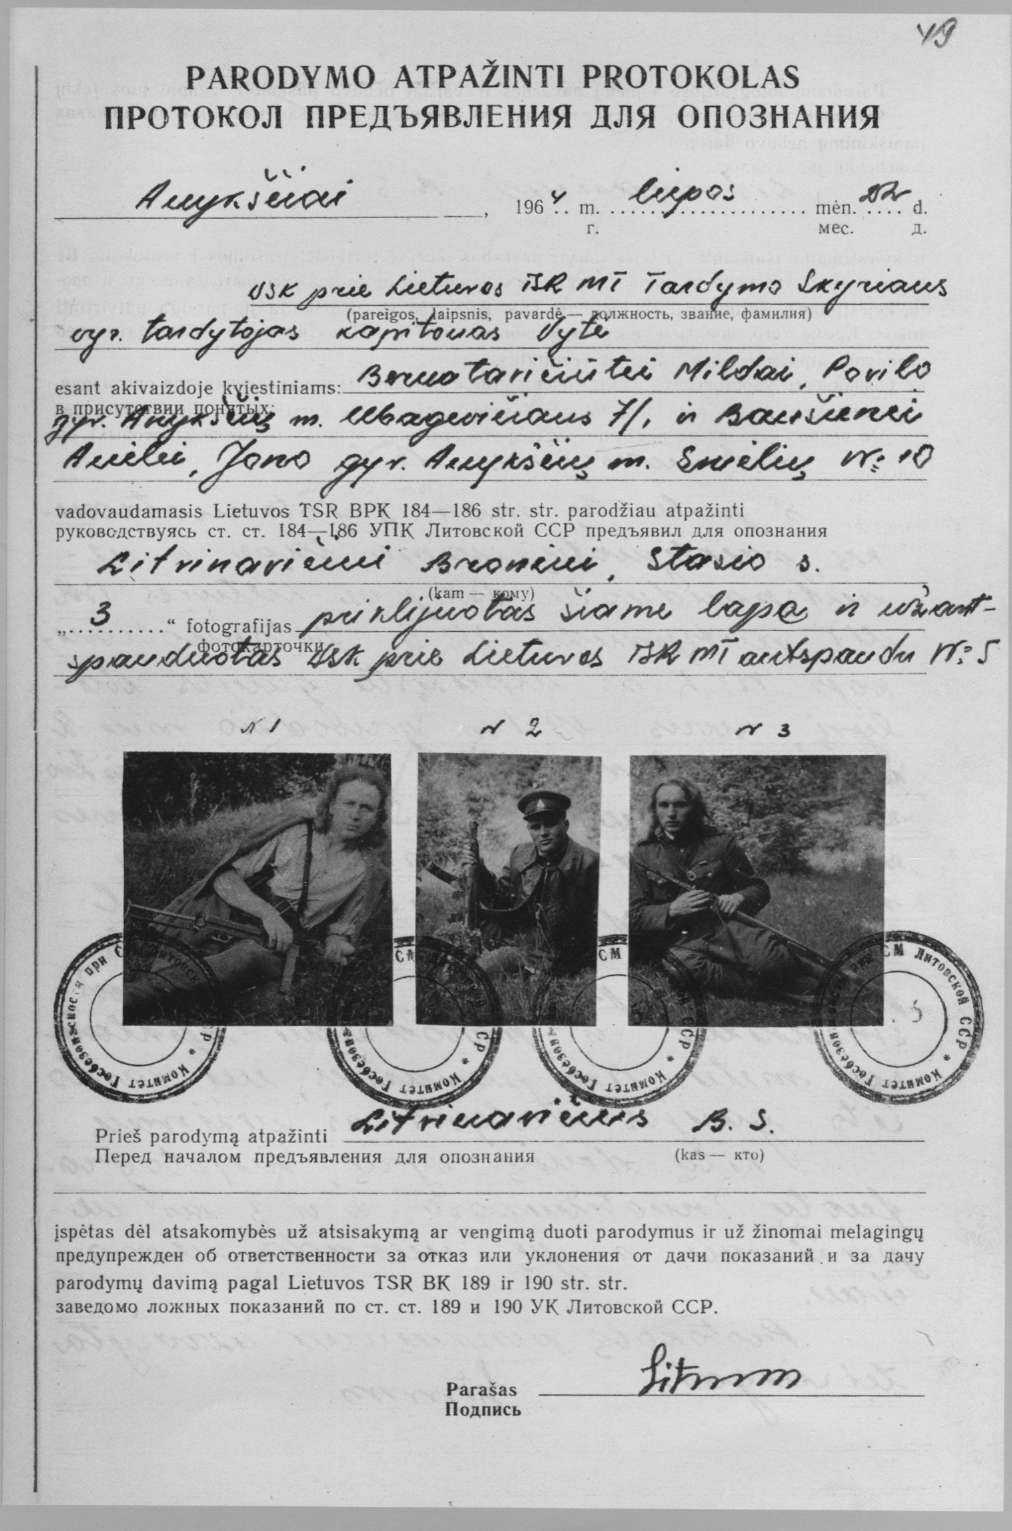 49
PARODYMO ATPAŽINTI PROTOKOLAS
ПРОТОКОЛ ПРЕДЪЯВЛЕНИЯ ДЛЯ ОПОЗНАНИЯ
Anykščiai, 1964 m. liepos mėn. 22 d.
г. мес. д.
VSK prie Lietuvos TSR MT Tardymo Skyriaus
(pareigos, laipsnis, pavardė — должность, звание, фамилия)
vyr. tardytojas kapitonas Vytė
esant akivaizdoje kviestiniams: Bernotavičiūtei Mildai, Povilo
в присутствии понятых:
gyr. Anykščių m. 7/, ir
Anelei, Jono gyr. Anykščių m. Smėlių Nr 10
vadovaudamasis Lietuvos TSR BPK 184—186 str. str. parodžiau atpažinti
руководствуясь ст. ст. 184—186 УПК Литовской ССР предъявил для опознания
Litvinavičiui Broniui, Stasio s.
(kam — кому)
„3“ fotografijas priklijuotas šiame lape ir užant-
фотокарточки
spauduotas VSK prie Lietuvos TSR MT antspaudu Nr 5
N 1 N 2 N 3
Комитет Госбезопасности при СМ Литовской ССР
Комитет Госбезопасности при СМ Литовской ССР
Комитет Госбезопасности при СМ Литовской ССР
Комитет Госбезопасности при СМ Литовской ССР
5
Prieš parodymą atpažinti Litvinavičius B. S.
Перед началом предъявления для опознания (kas — кто)
įspėtas dėl atsakomybės už atsisakymą ar vengimą duoti parodymus ir už žinomai melagingų
предупрежден об ответственности за отказ или уклонения от дачи показаний и за дачу
parodymų davimą pagal Lietuvos TSR BK 189 ir 190 str. str.
заведомо ложных показаний по ст. ст. 189 и 190 УК Литовской ССР.
Parašas
Подпись